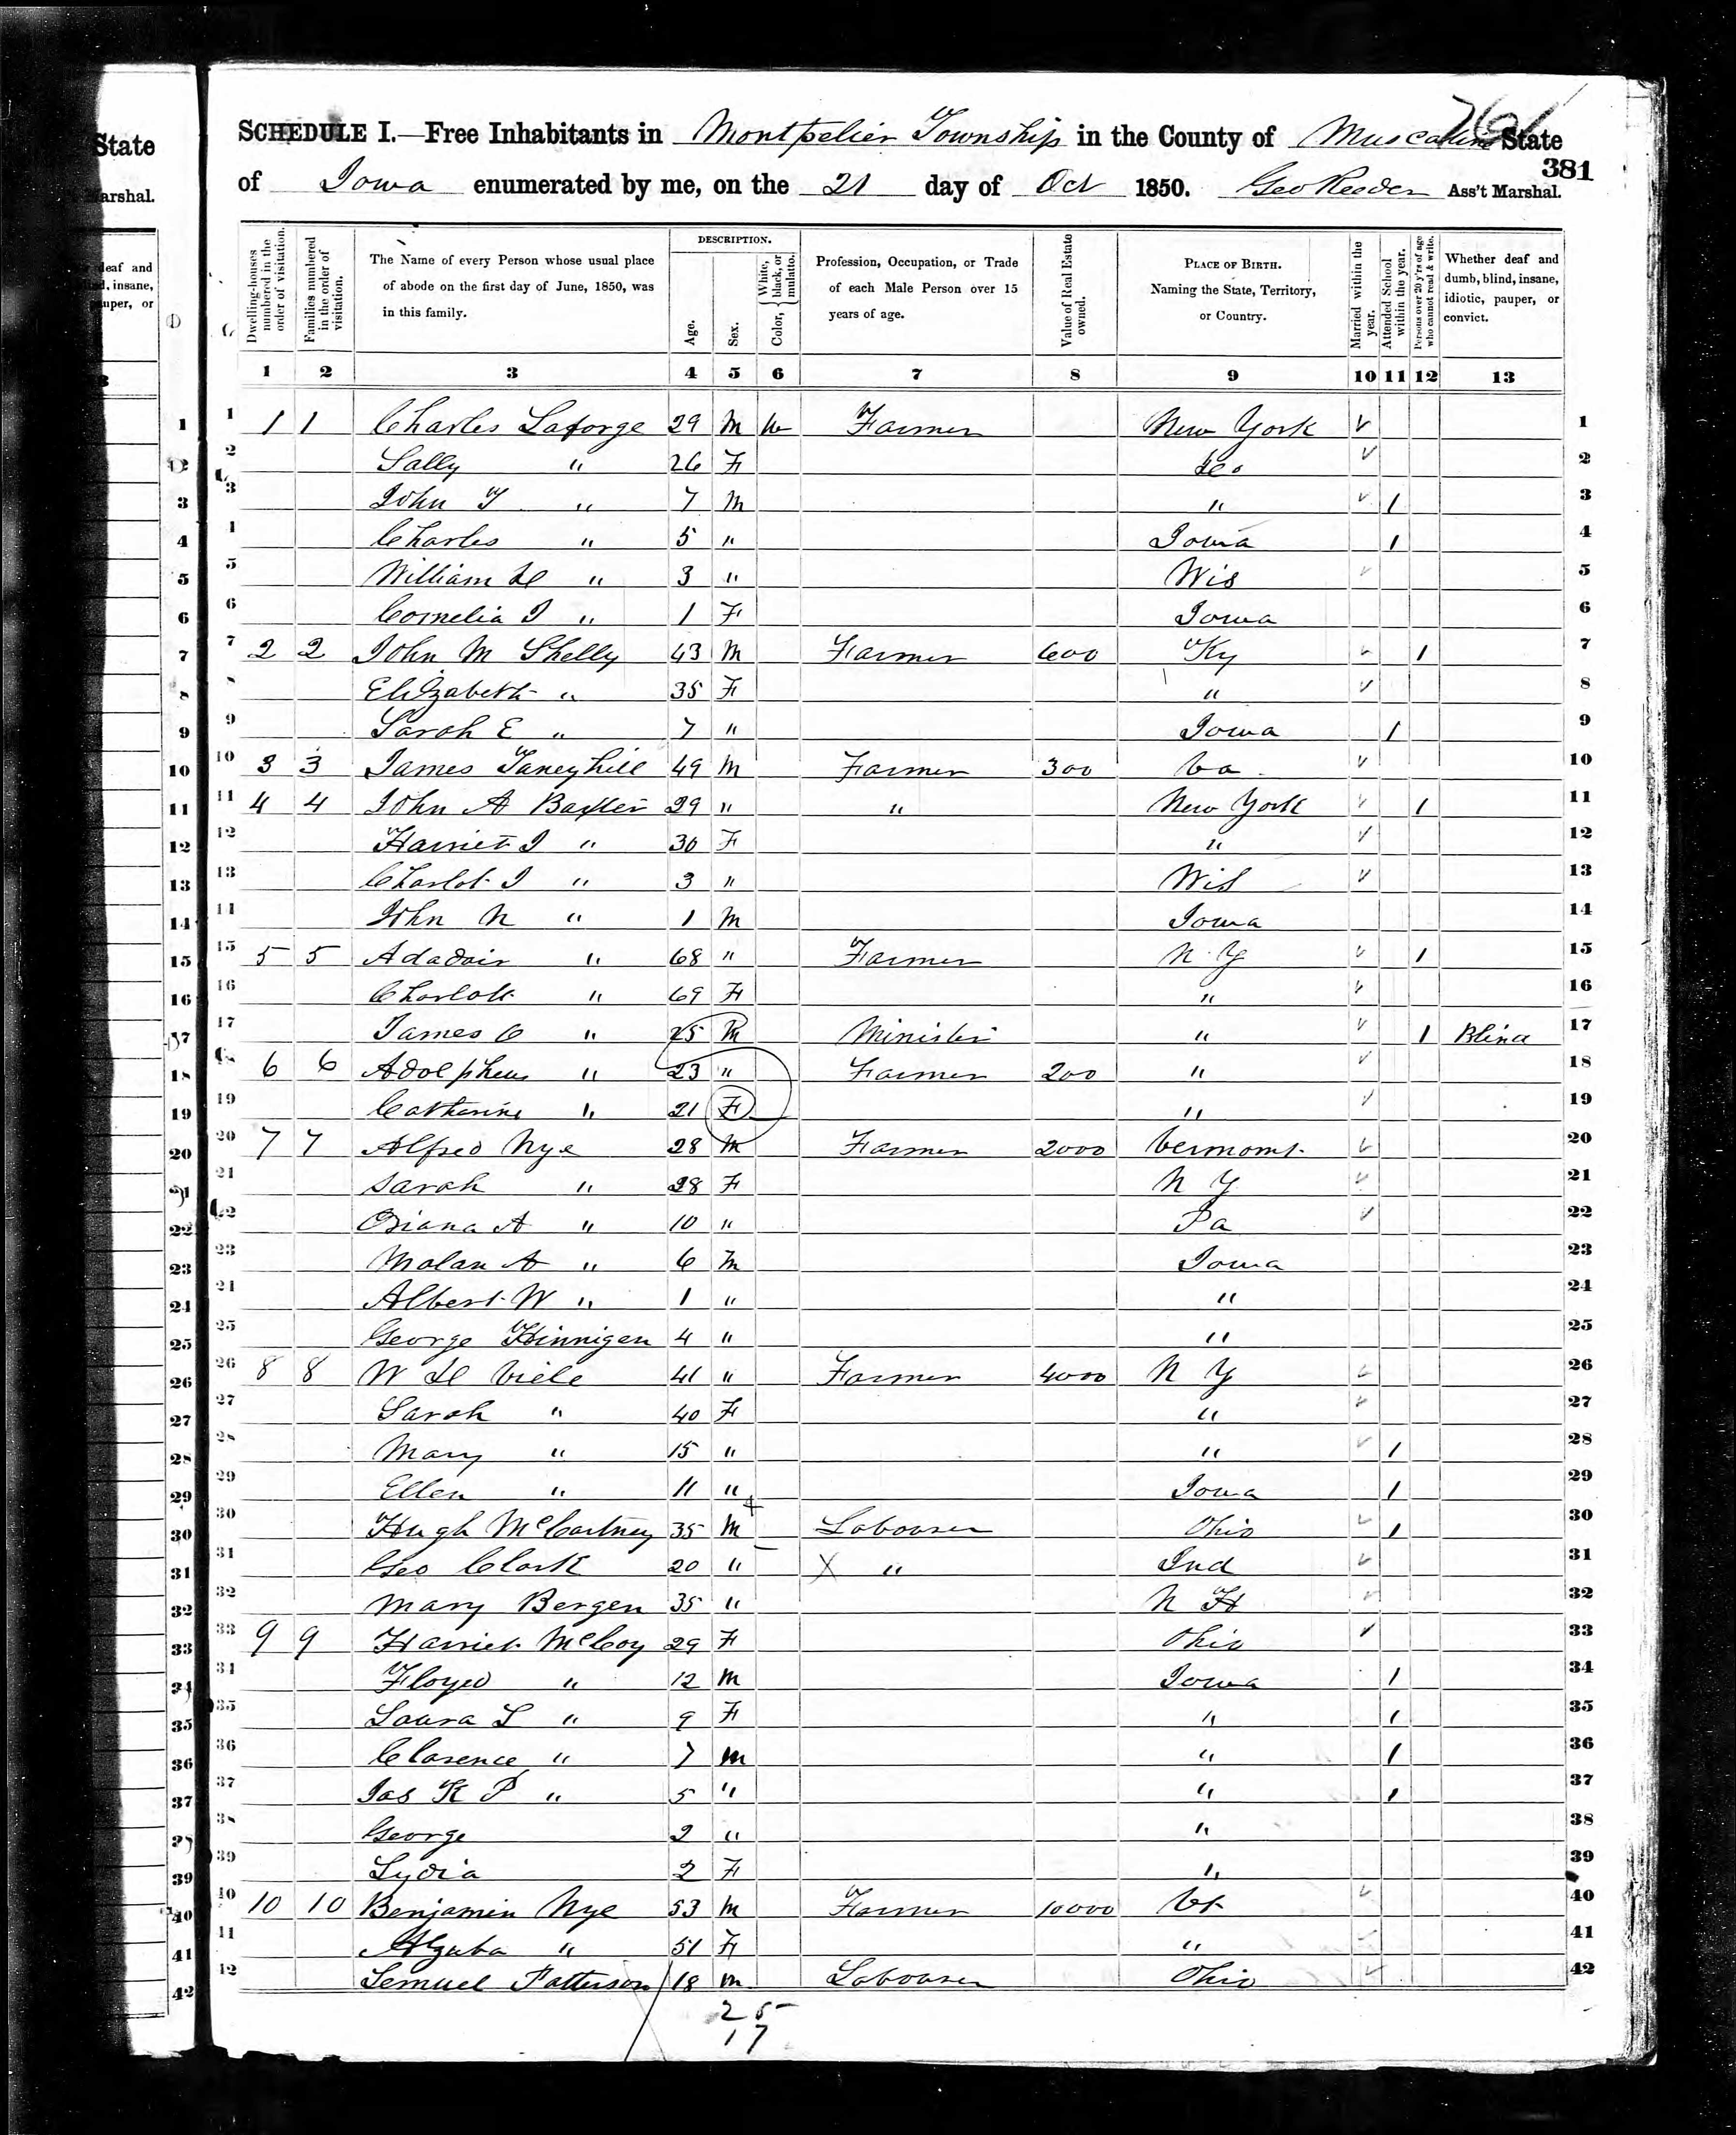 State
Marshal.
761
SCHEDULE I.—Free Inhabitants in Montpelier Township in the County of Muscatine State
381
of Iowa enumerated by me, on the 21 day of Oct 1850. Geo Reeder Ass't Marshal.
Dwelling-houses numbered in the order of visitation.
Families numbered in the order of visitation.
The Name of every Person whose usual place of abode on the first day of June, 1850, was in this family.
DESCRIPTION.
Age.
Sex.
Color, { White, black, or mulatto.
Profession, Occupation, or Trade of each Male Person over 15 years of age.
Value of Real Estate owned.
PLACE OF BIRTH. Naming the State, Territory, or Country.
Married within the year.
Attended School within the year.
Persons over 20 y'rs of age who cannot read & write.
Whether deaf and dumb, blind, insane, idiotic, pauper, or convict.
1 2 3 4 5 6 7 8 9 10 11 12 13
1 1 1 Charles Laforge 29 M W Farmer New York 1
2 Sally " 26 F do 2
3 John T " 7 M " 1 3
4 Charles " 5 " Iowa 1 4
5 William H " 3 " Wis 5
6 Cornelia J " 1 F Iowa 6
7 2 2 John M Shelly 43 M Farmer 600 Ky 1 7
8 Elizabeth " 35 F " 8
9 Sarah E " 7 " Iowa 1 9
10 3 3 James Taneyhill 49 M Farmer 300 Va 10
11 4 4 John A Baxter 29 " " New York 1 11
12 Harriet J " 30 F " 12
13 Charlot J " 3 " Wis 13
14 John N " 1 M Iowa 14
15 5 5 " 68 " Farmer N Y 1 15
16 Charlott " 69 F " 16
17 James O " 25 M Minister " 1 Blind 17
18 6 6 Adolpheus " 23 " Farmer 200 " 18
19 Catherine " 21 F " 19
20 7 7 Alfred Nye 28 M Farmer 2000 Vermont 20
21 Sarah " 28 F N Y 21
22 Oriana A " 10 " Pa 22
23 Malan A " 6 M Iowa 23
24 Albert W " 1 " " 24
25 George Hinnigen 4 " " 25
26 8 8 W H Viele 41 " Farmer 4000 N Y 26
27 Sarah " 40 F " 27
28 Mary " 15 " " 1 28
29 Ellen " 11 " Iowa 1 29
30 Hugh McCartney 35 M Labourer Ohio 1 30
31 Geo Clark 20 " X " Ind 31
32 Mary Bergen 35 " N H 32
33 9 9 Harriet McCoy 29 F Ohio 33
34 Floyed " 12 M Iowa 1 34
35 Laura L " 9 F " 1 35
36 Clarence " 7 M " 1 36
37 Jas K P " 5 " " 1 37
38 George 2 " " 38
39 Lydia 2 F " 39
40 10 10 Benjamin Nye 53 M Farmer 10000 Vt 40
41 Azuba " 51 F " 41
42 Lemuel Patterson 18 M Labourer Ohio 42
25
17